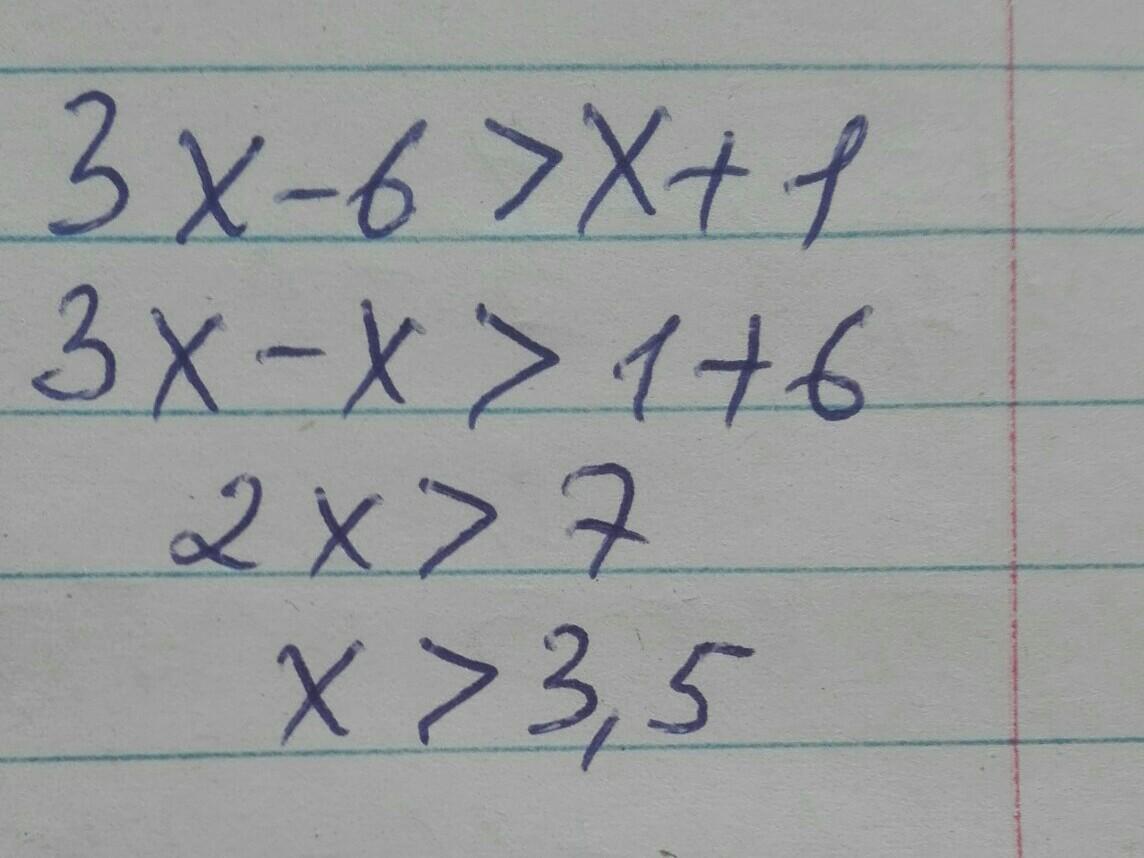 3x-6>x+1
3x-x>1+6
2x>7
x>3,5